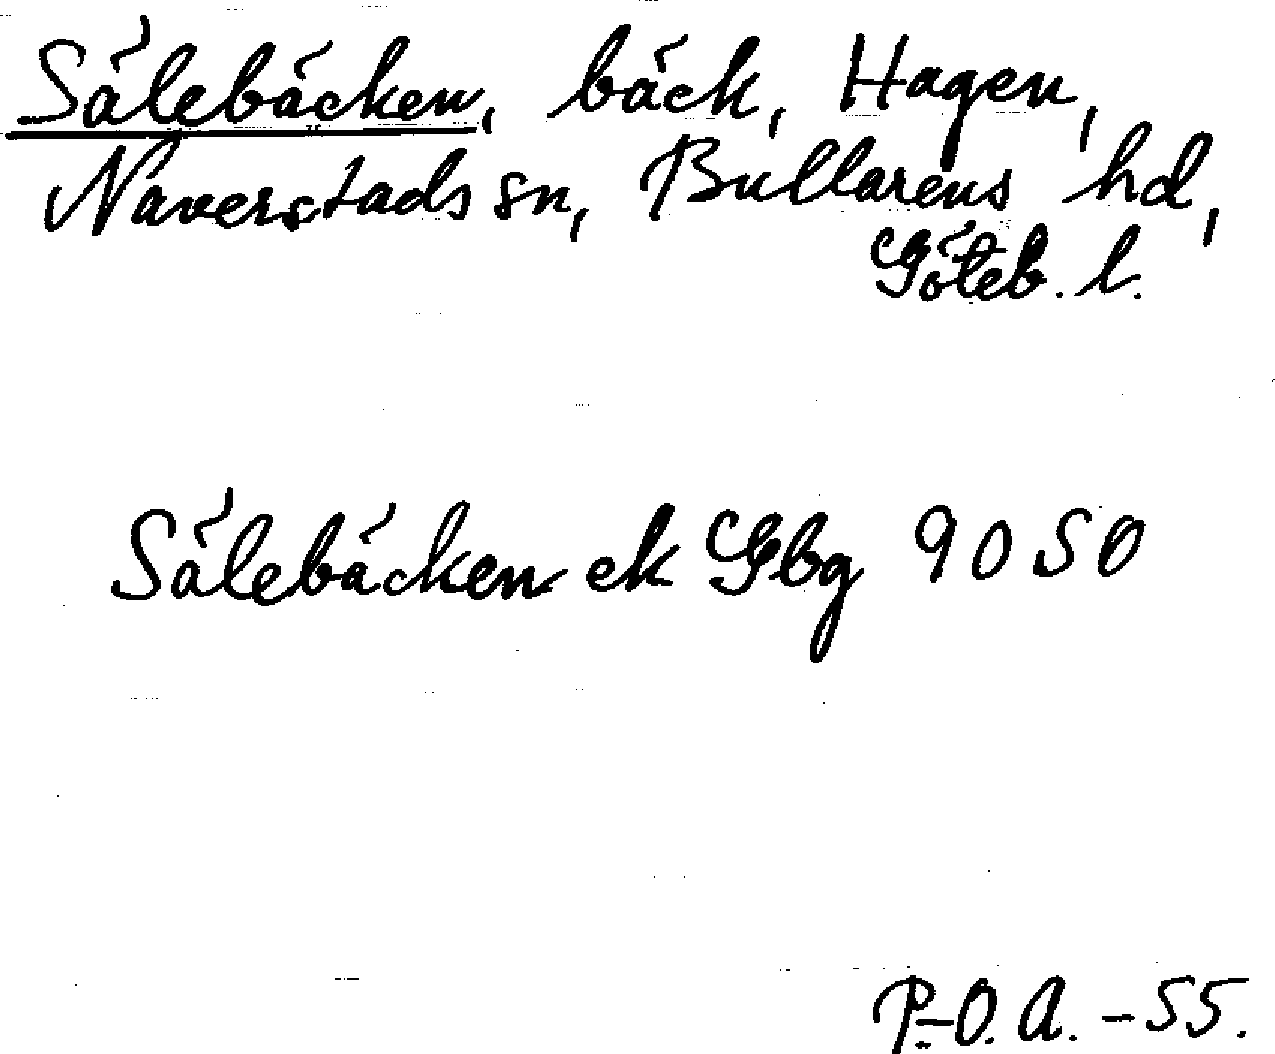 Sälebäcken, bäck, Hagen,
Naverstads sn, Bullarens hd,
Göteb. l.
Sälebäcken ek Gbg 9050
P-O. A. - 55.